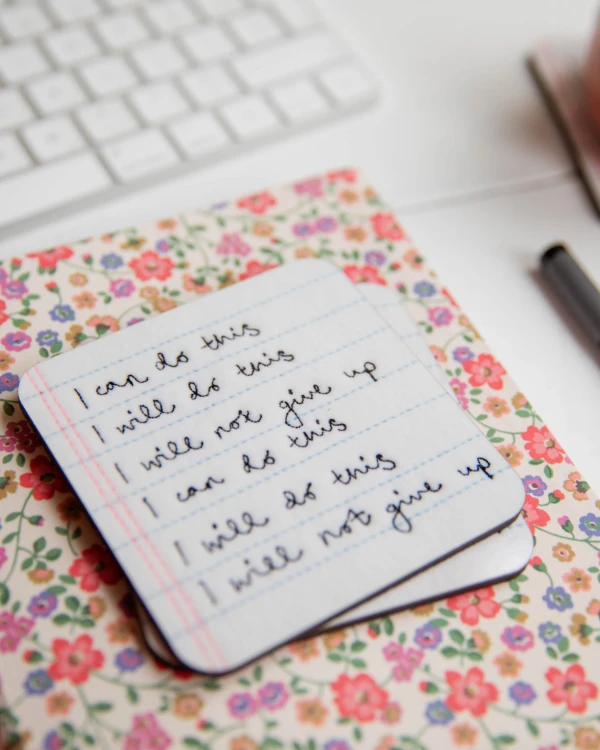 I can do this
I will do this
I will not give up
I can do this
I will do this
I will not give up